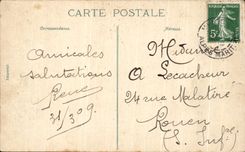 CARTE POSTALE
Correspondance
Adresse
Amicales
salutations
René
31/3 09.
A Lecacheur
24 rue Malatiré
Rouen
(S. Infre)
5c